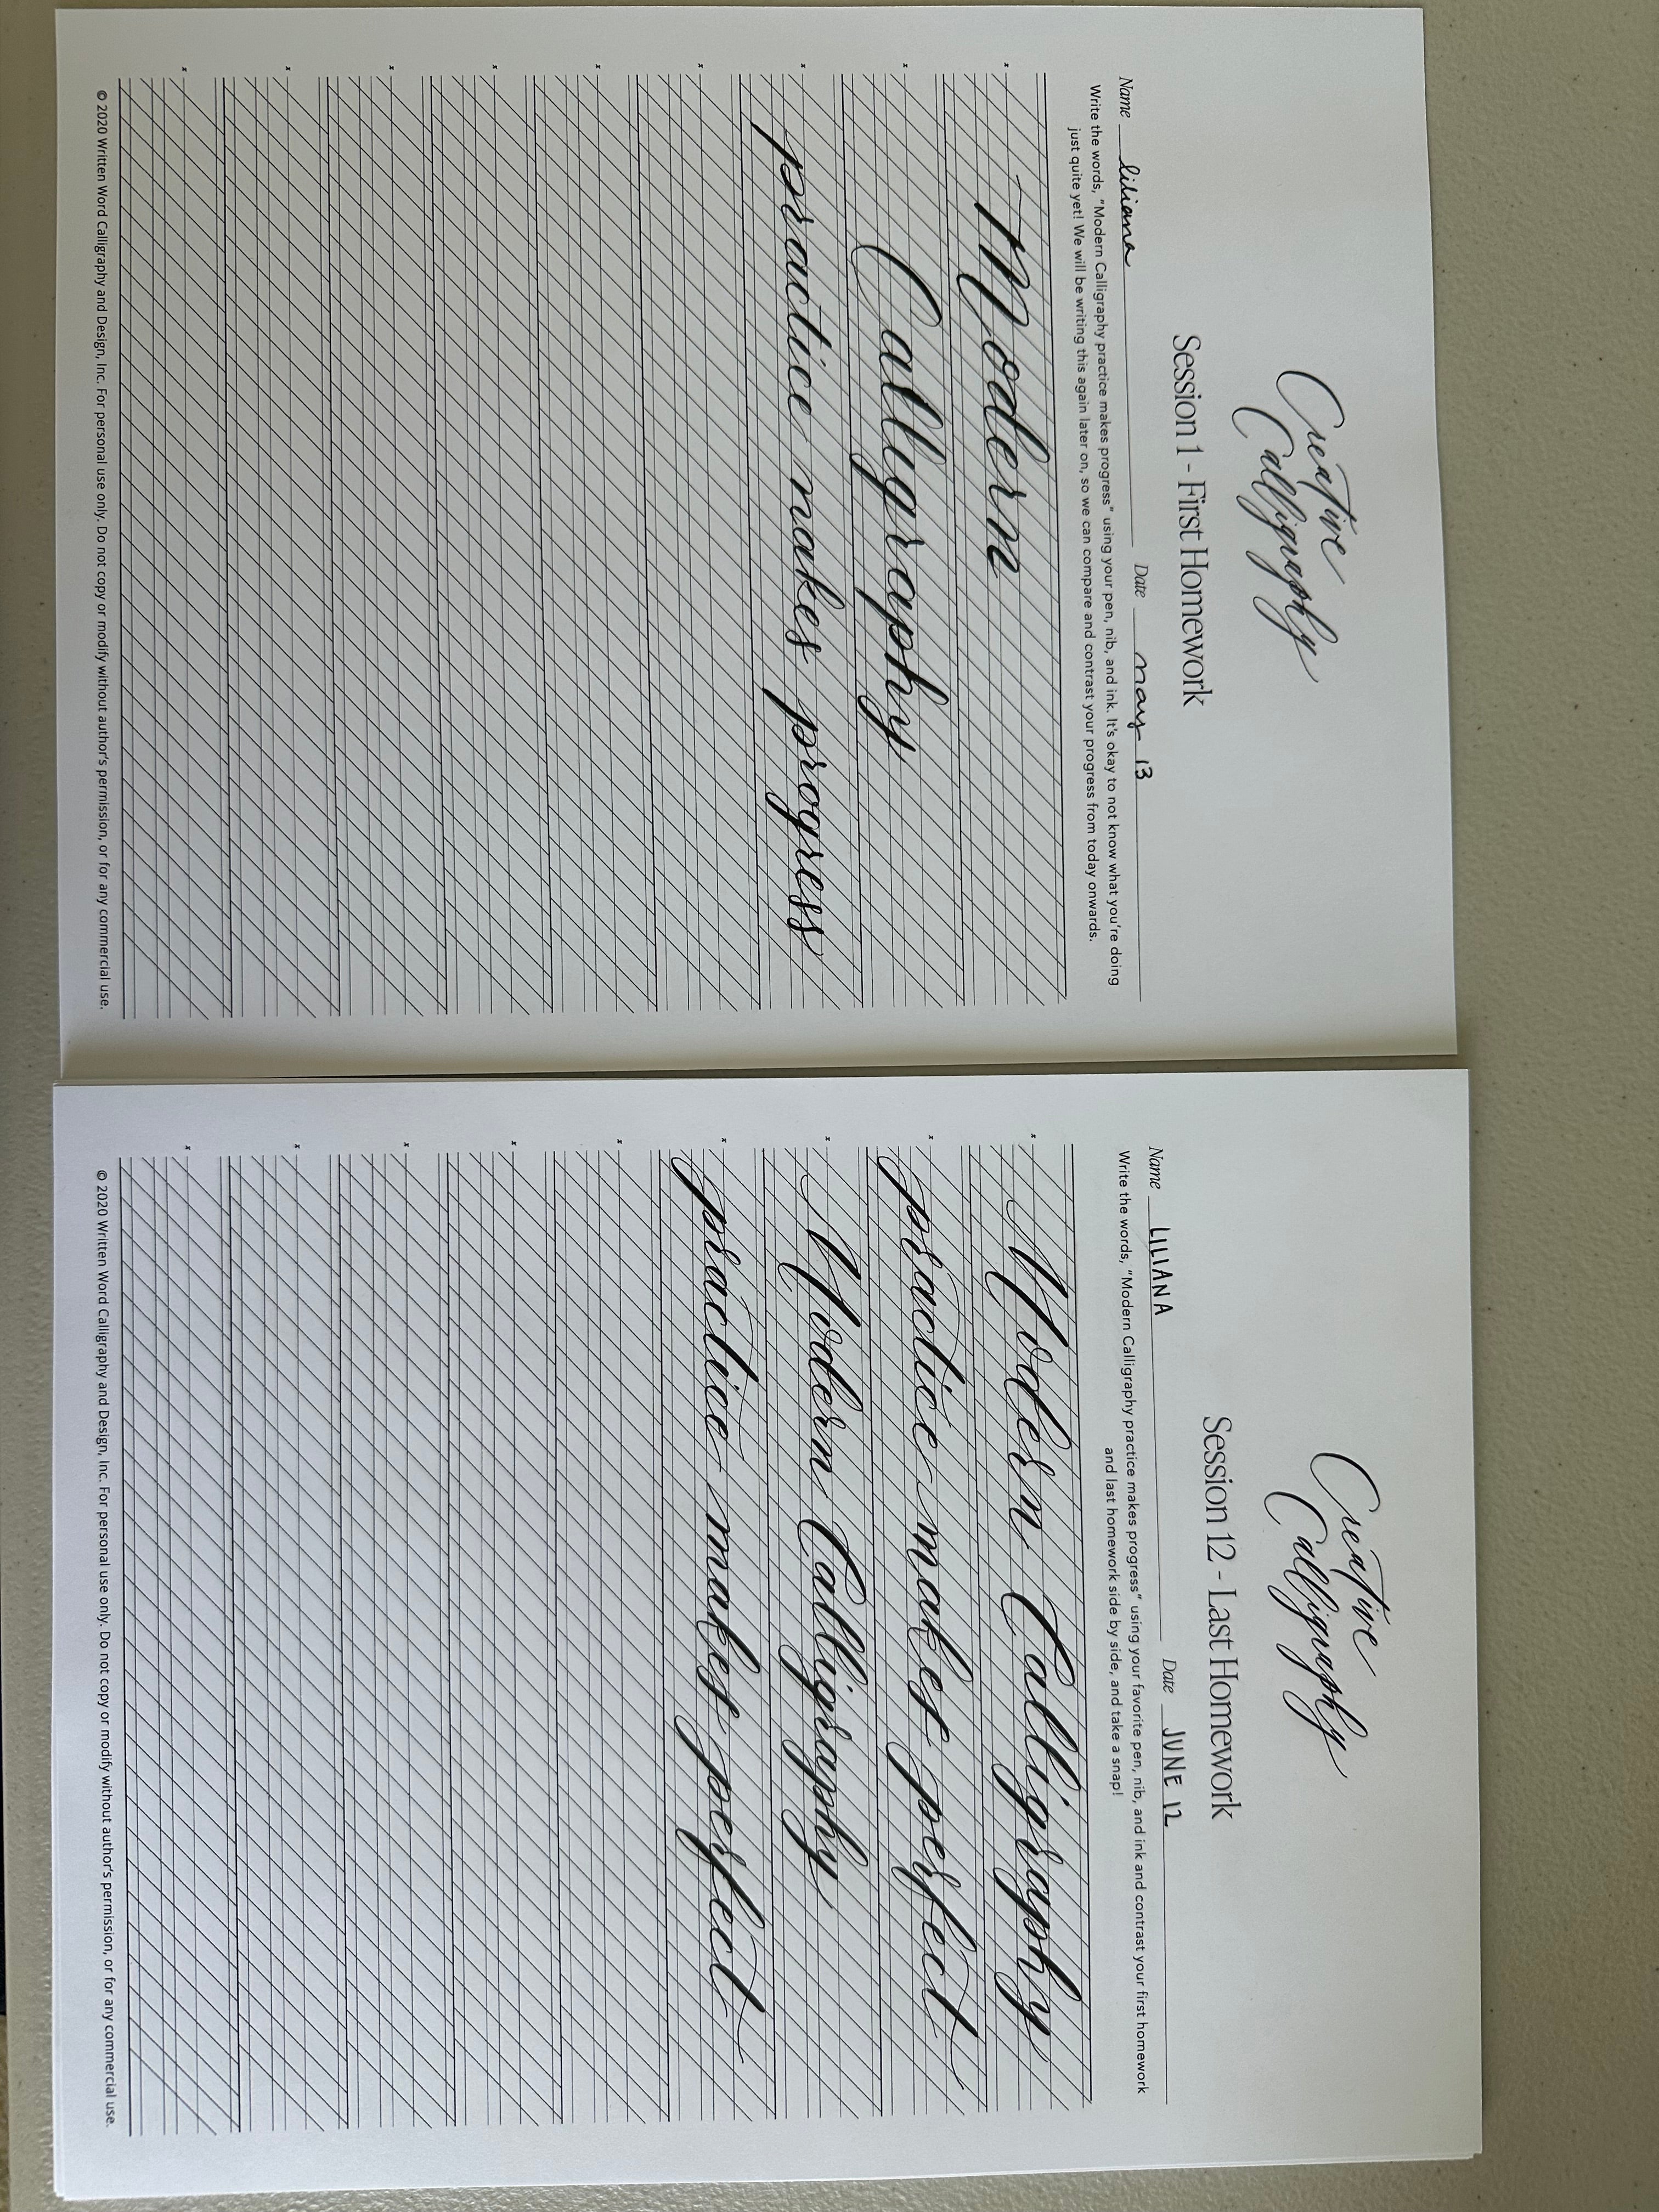 Creative
Calligraphy
Session 1 - First Homework
Name liliana Date may 13
Write the words, "Modern Calligraphy practice makes progress" using your pen, nib, and ink. It's okay to not know what you're doing
just quite yet! We will be writing this again later on, so we can compare and contrast your progress from today onwards.
x Modern
x Calligraphy
x practice makes progress
x
x
x
x
x
x
© 2020 Written Word Calligraphy and Design, Inc. For personal use only. Do not copy or modify without author's permission, or for any commercial use.
Creative
Calligraphy
Session 12 - Last Homework
Name LILIANA Date JUNE 12
Write the words, "Modern Calligraphy practice makes progress" using your favorite pen, nib, and ink and contrast your first homework
and last homework side by side, and take a snap!
x Modern Calligraphy
x practice makes perfect
x Modern Calligraphy
x practice makes perfect
x
x
x
x
x
© 2020 Written Word Calligraphy and Design, Inc. For personal use only. Do not copy or modify without author's permission, or for any commercial use.